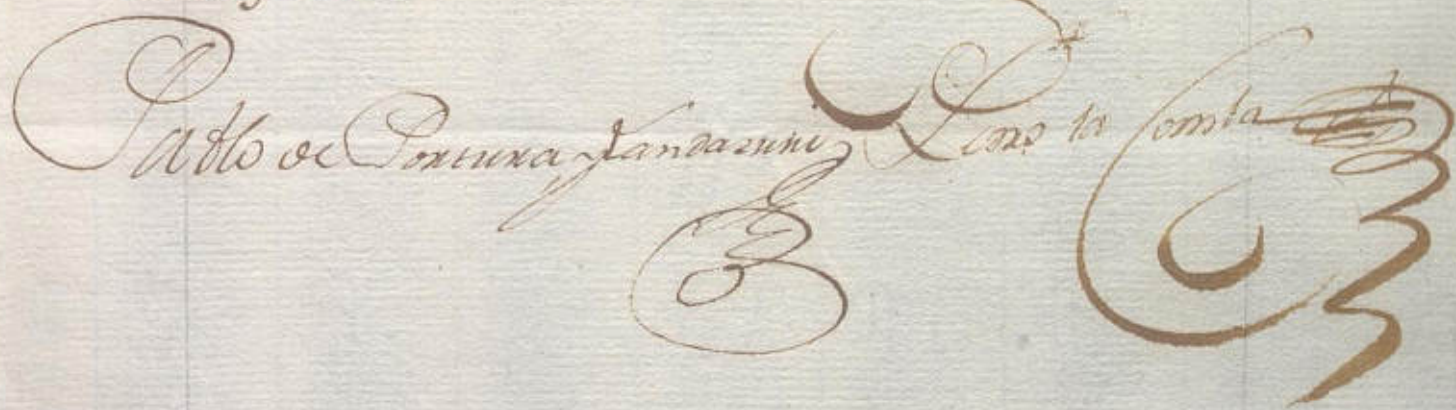 Pablo de Portura y Landazuri Pedro la Comba